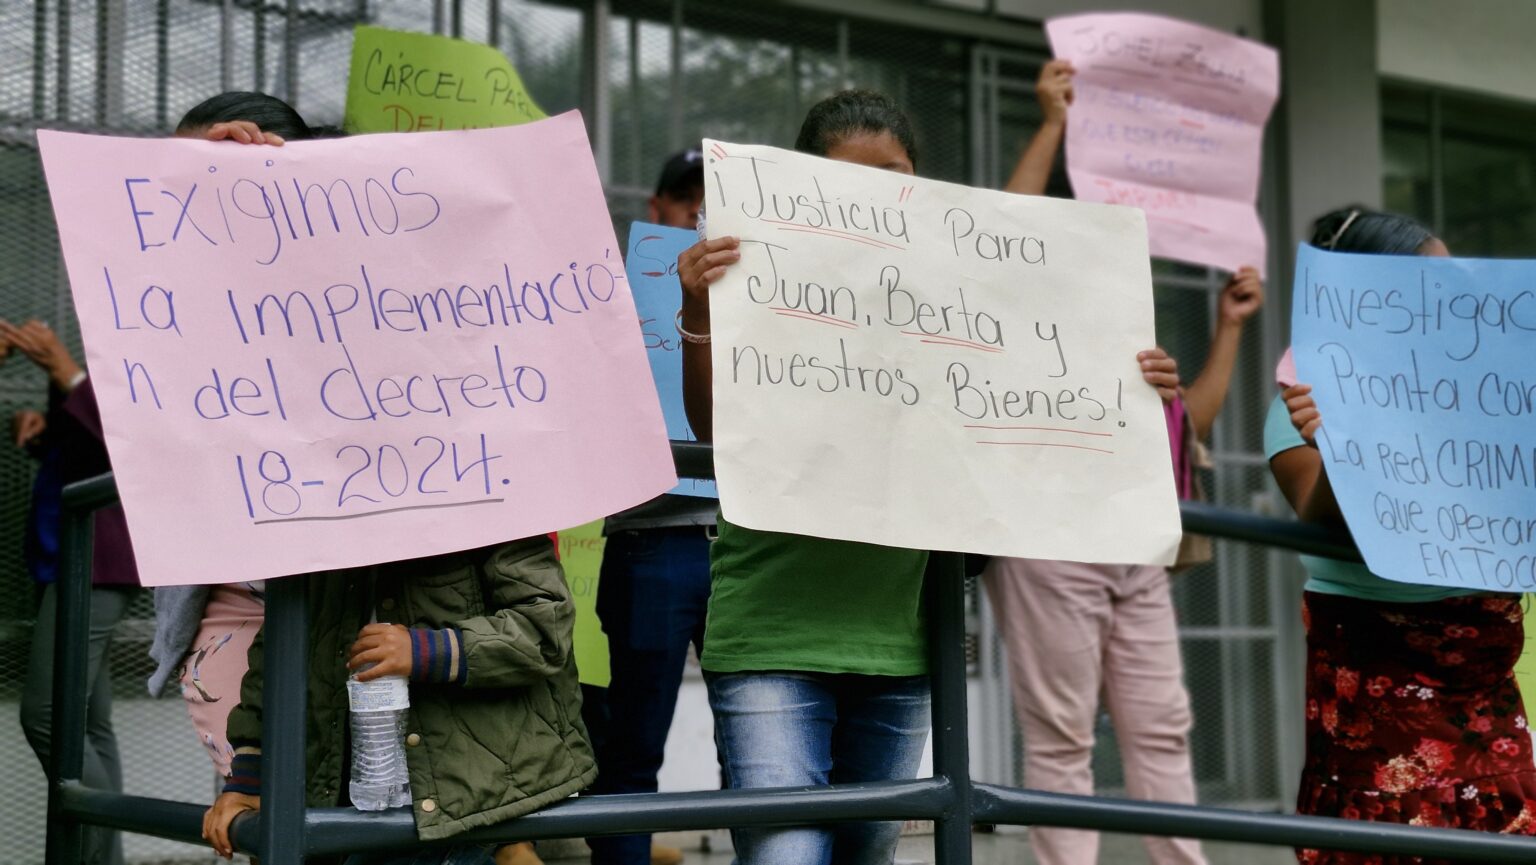 CÁRCEL PARA
DEL
Exigimos
La implementació-
n del decreto
18-2024.
¡"Justicia" Para
Juan, Berta y
nuestros Bienes!
JOHEL
QUE ESTE CRIMEN
Investigac
Pronta con
La Red CRIMI
Que operan
EN Toco